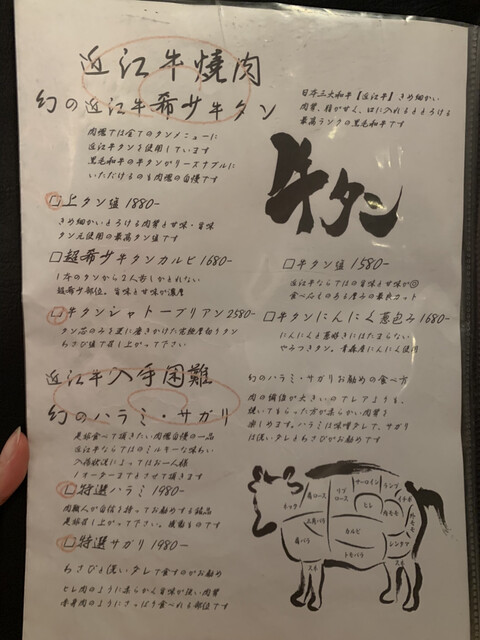 近江牛焼肉
幻の近江牛希少牛タン
日本三大和牛【近江牛】きめ細かい
肉質、脂がせん、口に入れるととろける
最高ランクの黒毛和牛です
肉標では全てのタンメニューに
近江牛タンを使用しています
黒毛和牛の牛タンがリーズナブルに
いただけるのも肉標の自慢です
牛タン
□上タン塩 1880-
きめ細かいとろける肉質と甘味・旨味
タン元使用の最高タン塩です
□超希少牛タンカルビ 1680-
1本のタンから2人前しかとれない
超希少部位。旨味と甘味が濃厚
□牛タンシャトーブリアン 2580-
タン芯のみを更に磨きかけた究極厚切りタン
わさび塩で召し上がって下さい
□牛タン塩 1580-
近江牛ならではの旨味と甘味が◎
食べ応えのある厚みの最良カット
□牛タンにんにく葱包み 1680-
にんにくと葱好きにはたまらない
やみつきタン。青森産にんにく使用
近江牛入手困難
幻のハラミ・サガリ
是非食べて頂きたい肉標自慢の一品
近江牛ならではのミルキーな味わい
入荷状況によってはお一人様
1オーダーまでとさせて頂きます
□特選ハラミ 1980-
肉職人が自信を持ってお勧めする銘品
是非召し上がって下さい。後悔なしです
□特選サガリ 1980-
わさびと洗いダレで食すのがお勧め
ヒレ肉のように柔らかん旨味が強い肉質
赤身肉のようにさっぱり食べれる部位です
幻のハラミ・サガリお勧めの食べ方
肉の価値が大きいのでレアよりも、
焼いてもらった方が柔らかい肉質を
楽しめます。ハラミは味噌タレで、サガリ
は洗いダレとわさびがお勧めです
ネック
肩ロース
リブロース
サーロイン
ランプ
イチボ
ヒレ
内モモ
外モモ
三角バラ
肩バラ
カルビ
トモバラ
シンタマ
スネ
スネ